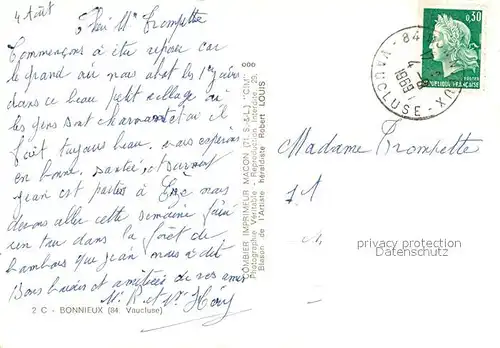 4 Août
Mr Trompette
Commençons à être reposer car
le grand air nous abat les 1er jours
dans ce beau petit village où
les gens sont charmants et où il
fait toujours beau. nous espérons
en bonne santée, et surtout
Jean est parties à nous
devons aller cette semaine faire
un tour dans la forêt de
bambous que Jean nous a dit
Bons baisers et amitiées de vos amis
Mr R et Me
2 C - BONNIEUX (84. Vaucluse)
COMBIER IMPRIMEUR MACON (71. S.-&-L.) "CIM"
Photographie Véritable - Reproduction Interdite
Blason de l'Artiste héraldiste Robert LOUIS
0,30
REPUBLIQUE FRANÇAISE
84
4 -8
1969
VAUCLUSE
Madame Trompette
privacy protection
Datenschutz